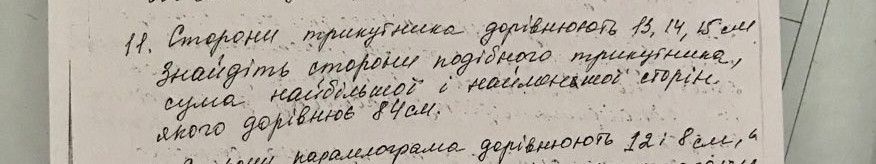 11. Сторони трикутника дорівнюють 13, 14, 15 см
Знайдіть сторони подібного трикутника,
сума найбільшої і найменшої сторін
якого дорівнює 84 см.
паралелограма дорівнюють 12 і 8 см, а